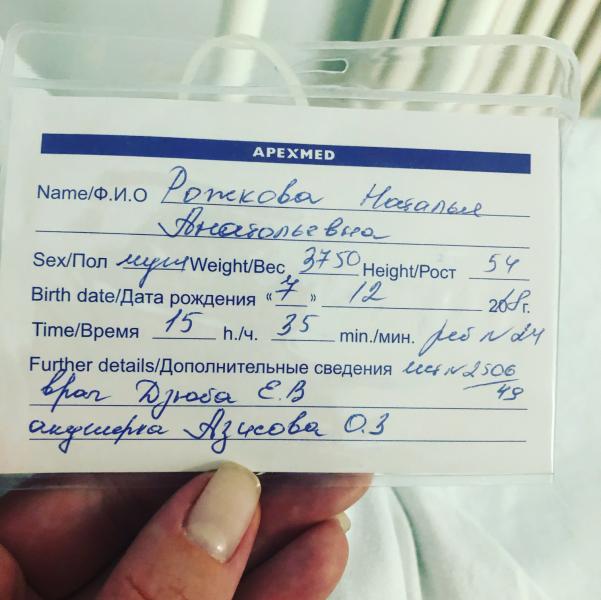 APEXMED
Name/Ф.И.О Рожкова Наталья
Анатольевна
Sex/Пол муж Weight/Вес 3750 Height/Рост 54
Birth date/Дата рождения «7» 12 2018г.
Time/Время 15 h./ч. 35 min./мин. реб N 24
Further details/Дополнительные сведения ист N 2506/49
врач Дзюба Е.В
акушерка Азисова О.З